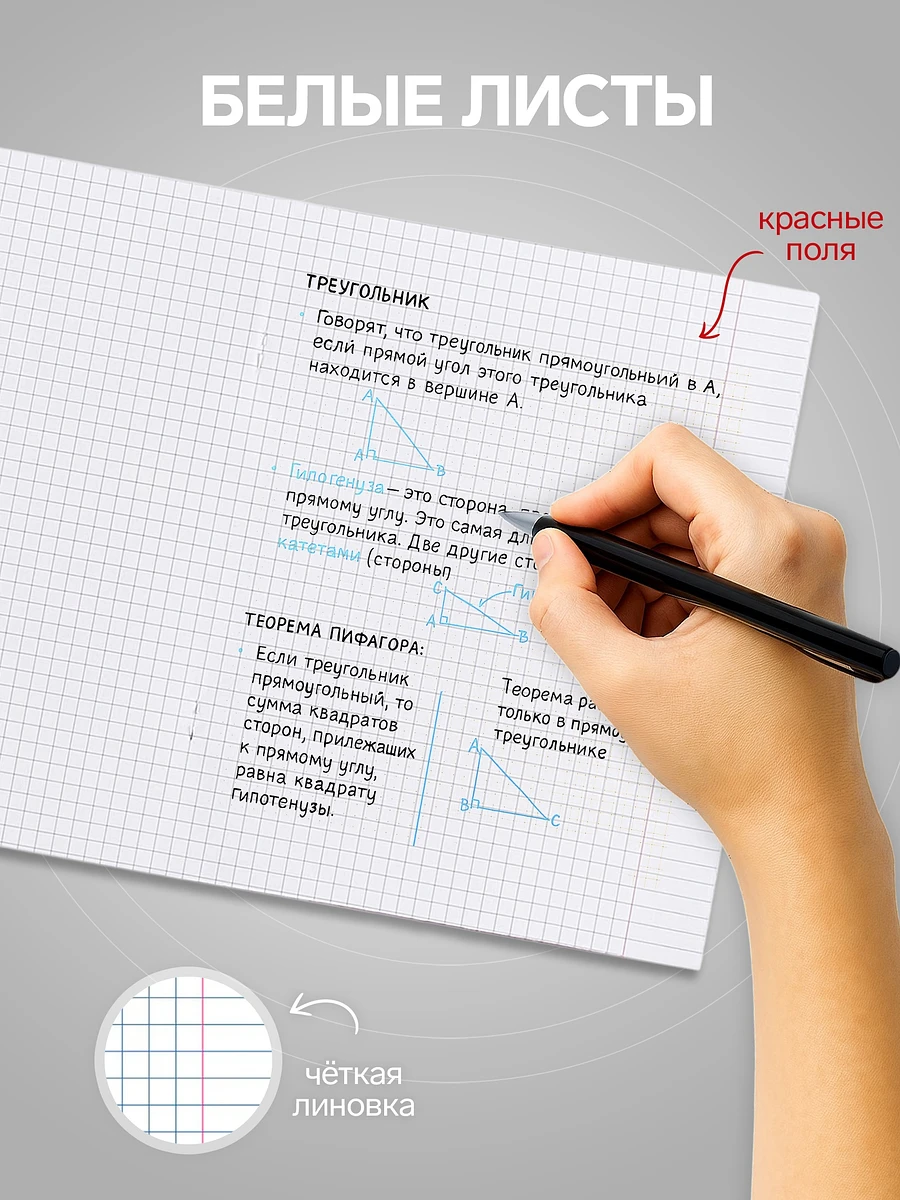 БЕЛЫЕ ЛИСТЫ
красные
поля
ТРЕУГОЛЬНИК
Говорят, что треугольник прямоугольный в А,
если прямой угол этого треугольника
находится в вершине А.
А
А
В
Гипотенуза – это сторона,
прямому углу. Это самая
треугольника. Две другие
катетами (стороны)
С
А
В
ТЕОРЕМА ПИФАГОРА:
Если треугольник
прямоугольный, то
сумма квадратов
сторон, прилежащих
к прямому углу,
равна квадрату
гипотенузы.
Теорема
только в
треугольнике
А
В
С
чёткая
линовка